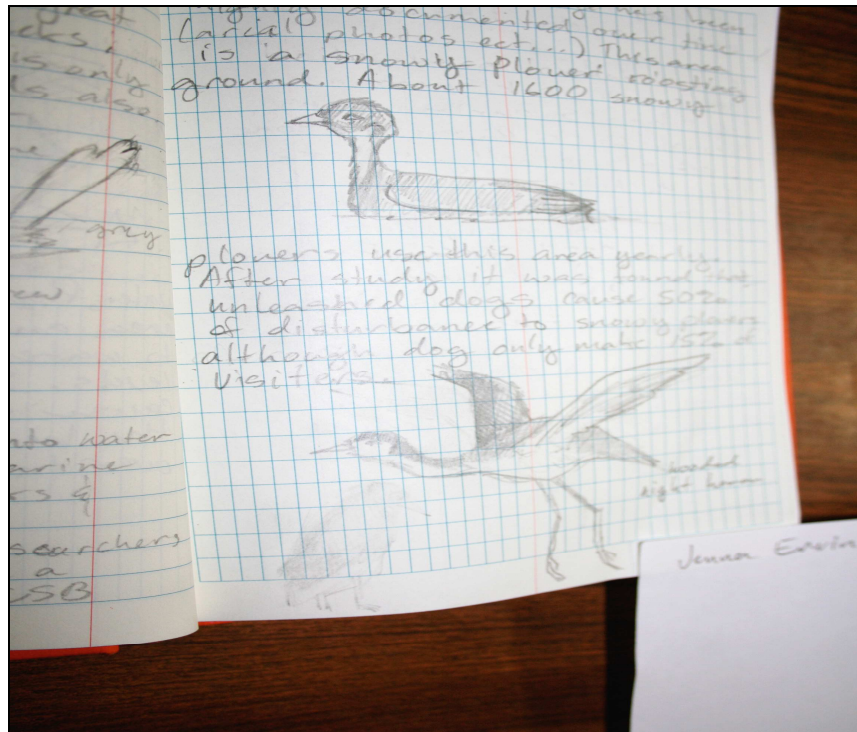 great
cks.
is only
ls also.
grey
nto water
arine
rs &
searchers
a
CSB
documented over time
(arial photos ect...) This area
is a snowy plover roosting
ground. About 1600 snowy
plovers use this area yearly.
After study it was found that
unleashed dogs cause 50%
of disturbance to snowy plovers
although dog only make 15% of
visiters.
night heron
Jenna